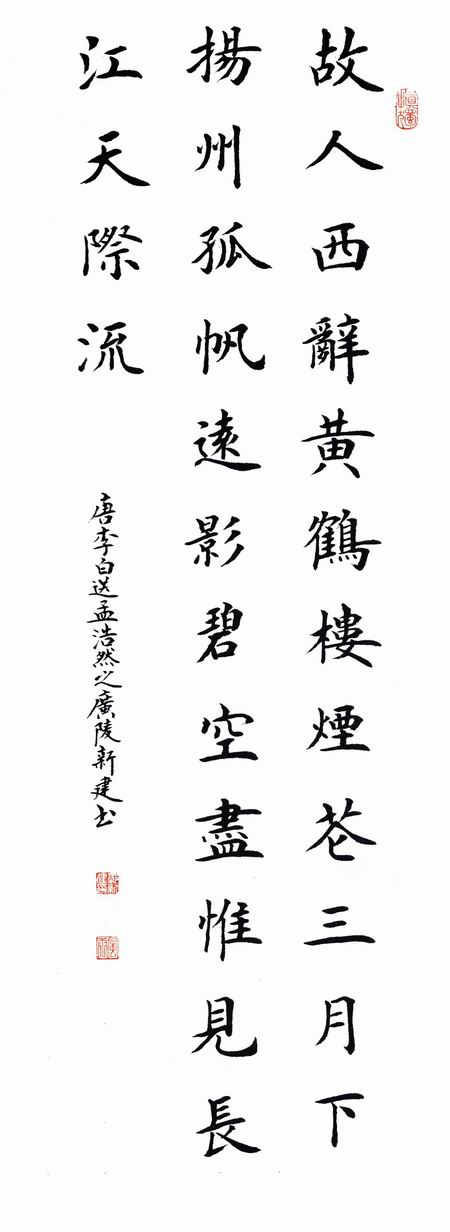 故人西辭黃鶴樓煙花三月下
揚州孤帆遠影碧空盡惟見長
江天際流
唐李白送孟浩然之廣陵新建书